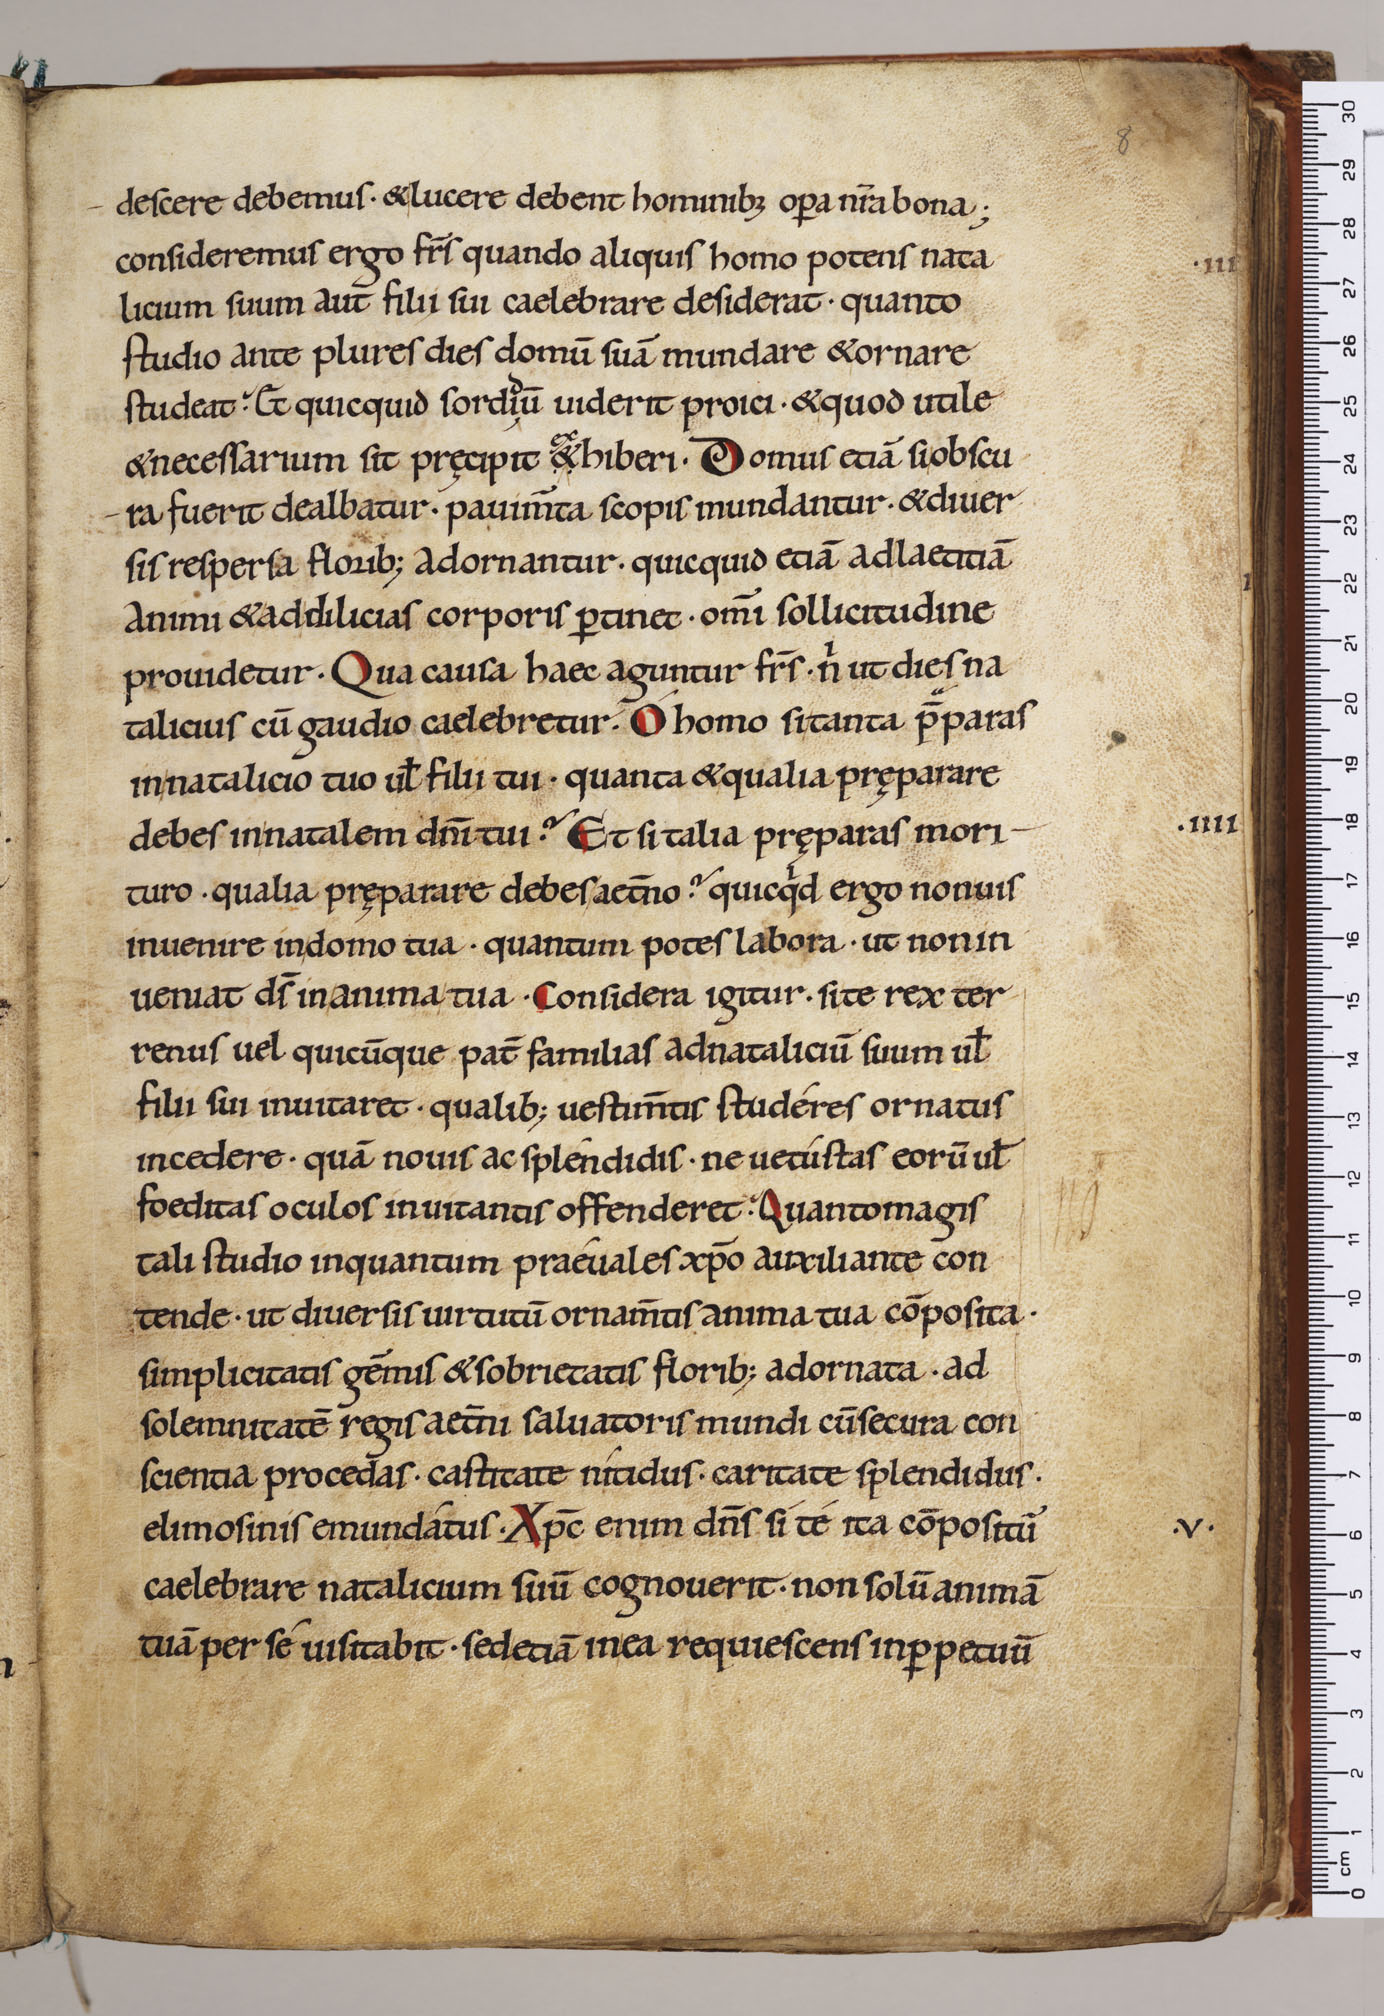 8
descere debemus· &lucere debent hominibꝫ oꝑa nr̄a bona;
consideremus ergo fr̄s quando aliquis homo potens nata
·III
licium suum aut̄ filii sui caelebrare desiderat· quanto
studio ante plures dies domū suā mundare &ornare
studeat? Et quicquid sordiū uiderit proici· &quod utile
&necessarium sit pręcipit exhiberi· Domus etiā si obscu
ra fuerit dealbatur· pauim̄ta scopis mundantur· &diuer
sis respersa florib; adornantur· quicquid etiā adlaetitiā
animi &addilicias corporis ꝑtinet· om̄i sollicitudine
prouidetur· Qua causa haec aguntur fr̄s· n̄ ut dies na
talicius cū gaudio caelebretur? O homo si tanta p̄paras
innatalicio tuo ul̄ filii tui· quanta &qualia pręparare
debes innatalem dn̄i tui? Et si talia pręparas mori
·IIII
turo· qualia pręparare debes aet̄no? quicqd ergo nonuis
inuenire indomo tua· quantum potes labora· ut nonin
ueniat ds̄ inanima tua· Considera igitur· site rex ter
renus uel quicūque pat̄ familias adnataliciū suum ul̄
filii sui inuitaret· qualib; uestim̄tis studéres ornatus
incedere· quā nouis ac spléndidis· ne uetústas eorū ul̄
foeditas oculos inuitantis offenderet? Quantomagis
tali studio inquantum praéuales xp̄o auxiliante con
tende· ut diuersis uirtutū ornam̄tis anima tua cōposita·
simplicitatis gēmis &sobrietatis florib; adornata· ad
solemnitatē regis aet̄ni saluatoris mundi cūsecura con
scientia procedas· castitate nítidus· caritate splendidus·
elimosinis emundátus· Xp̄c enim dn̄s sí té ita cōpositū
·V·
caelebrare natalicium suū cognouerit· non solū animā
tuā per sé uisitabit· sedetiā inea requiescens inꝑpetuū